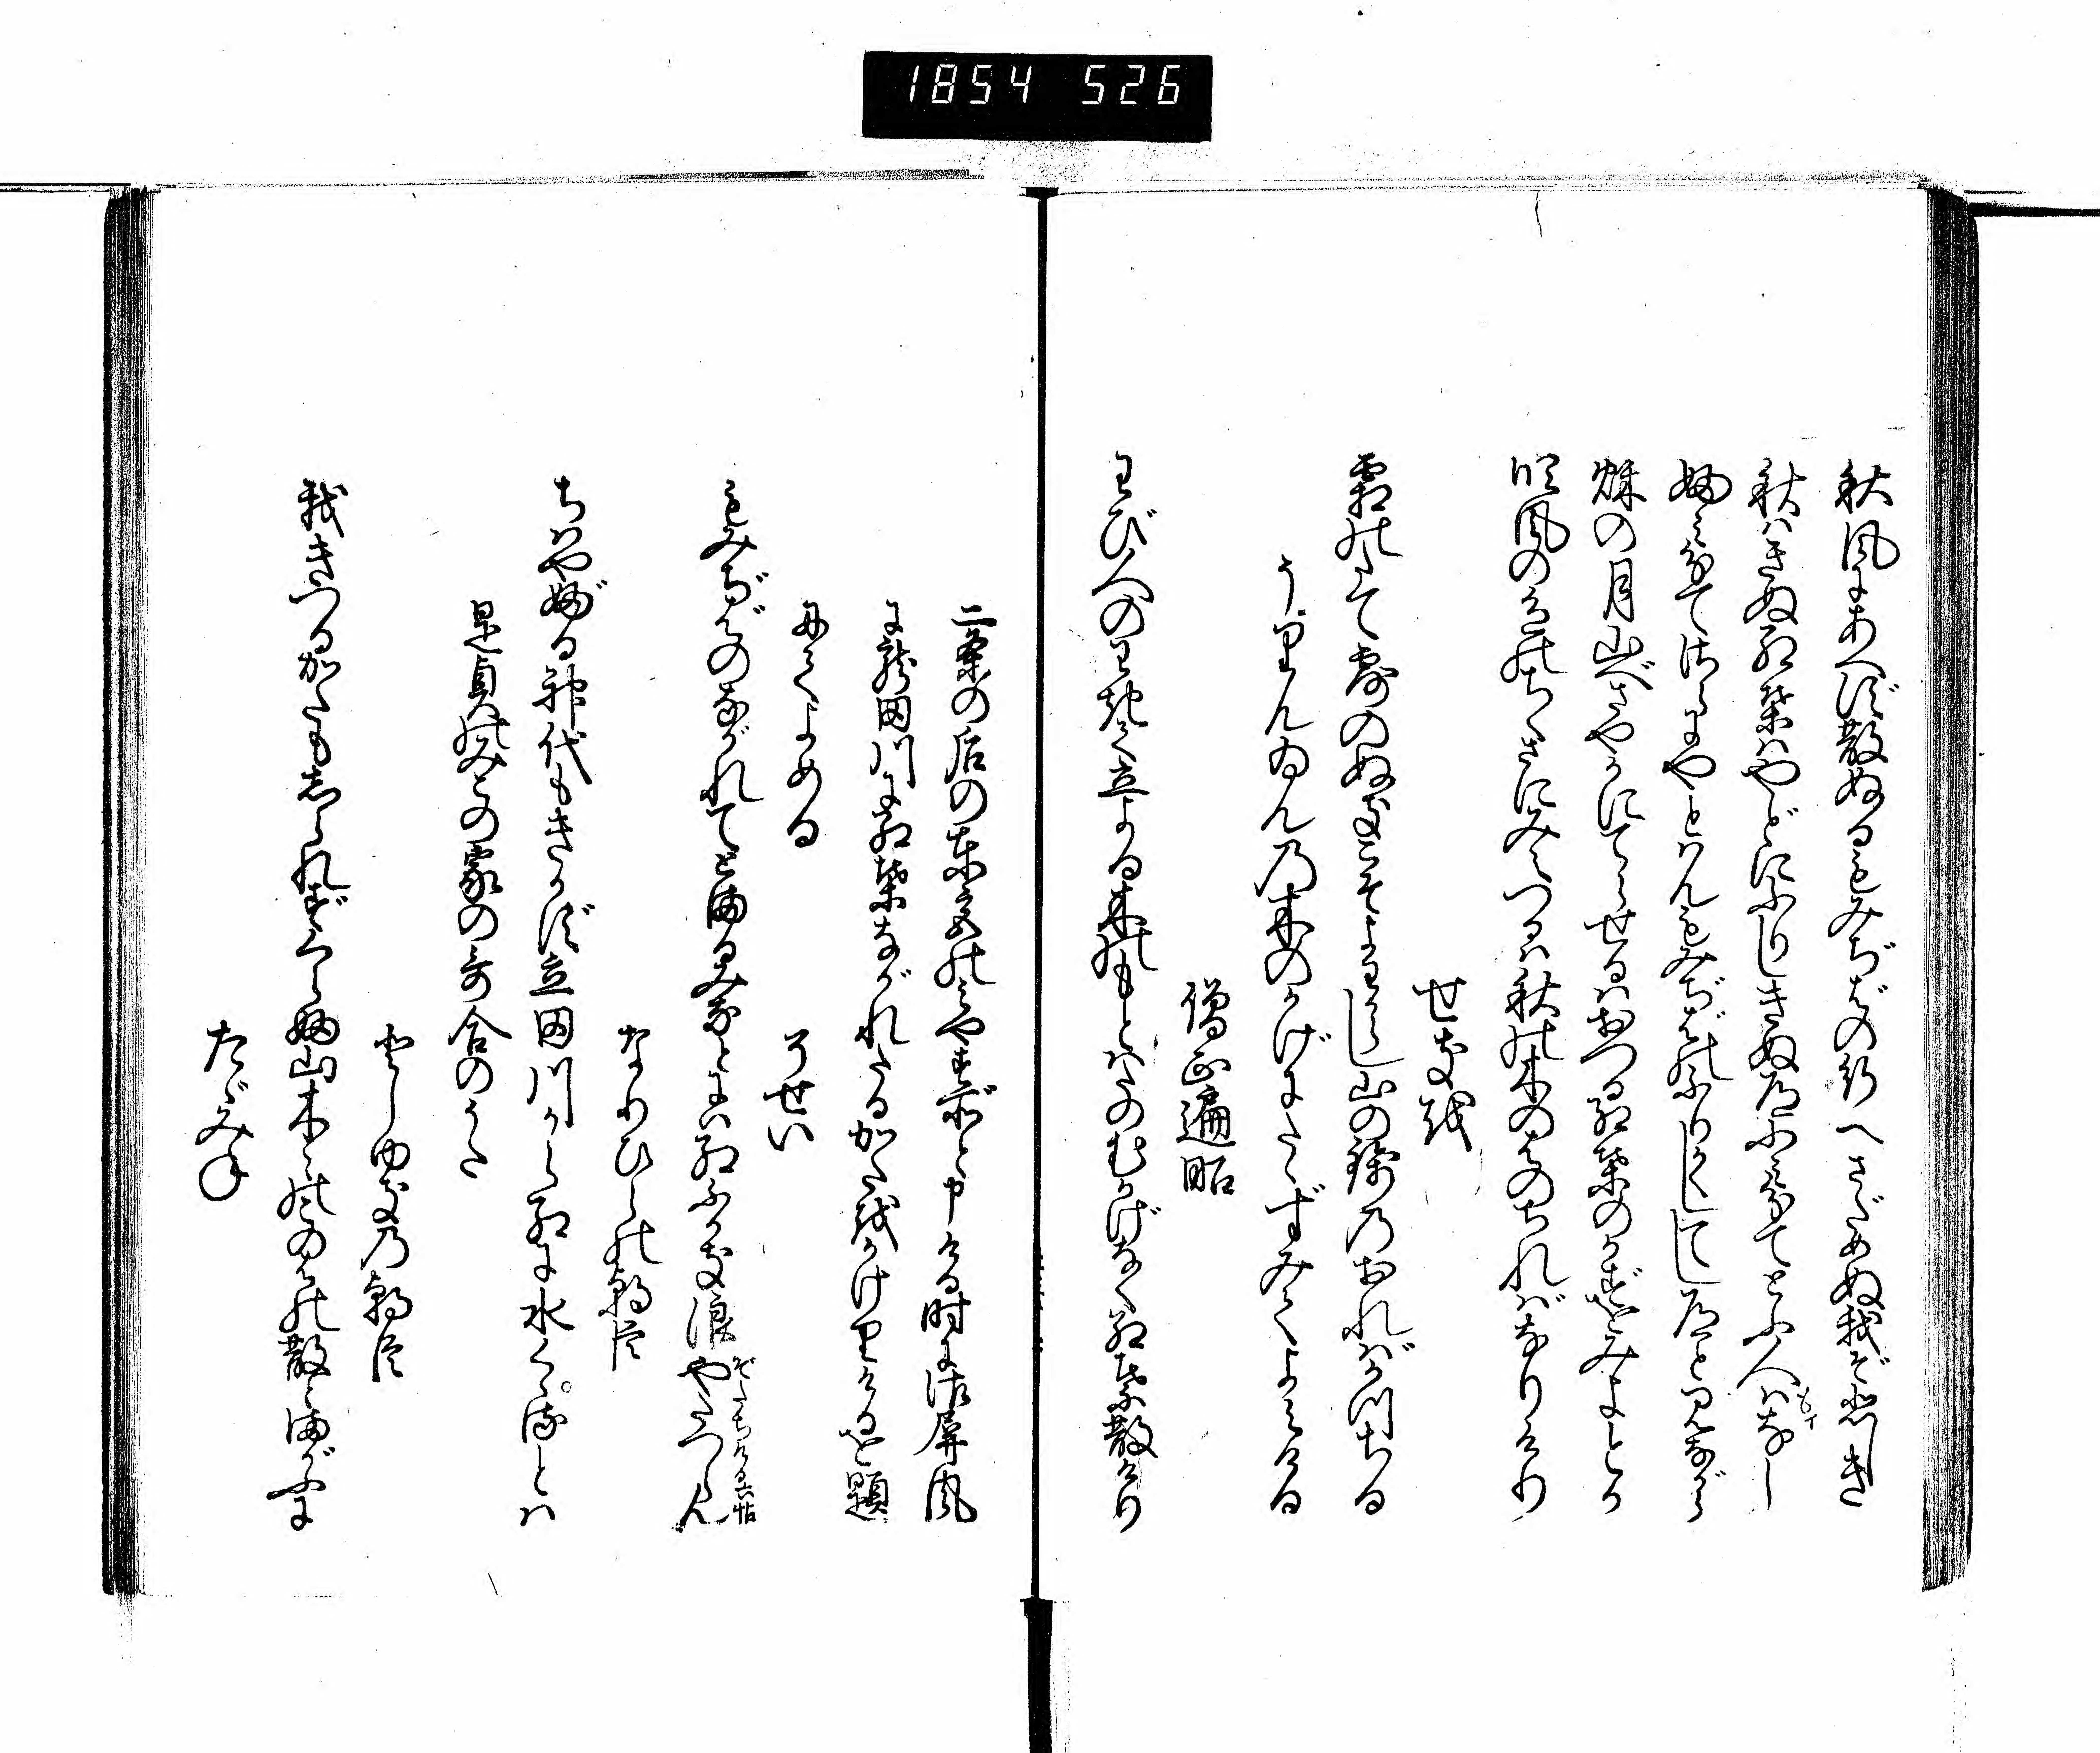 1854 526
秋風にあへず散ぬるもみぢばの行へさだめぬ我ぞ悲しき
秋はきぬ紅葉はやどにふりしきぬ道ふみ分てとふ人はなし
もイ
ふみ分てさらにやとはんもみぢばのふりかくしてし道と見ながら
秋の月山べさやかにてらせるはおつる紅葉のかずをみよとか
吹風の色のちくさにみえつるは秋の木のはのちればなりけり
せきを
霜のたて露のぬきこそよわからし山の錦のおればかつちる
うりんゐんの木のかげにたゝずみてよみける
僧正遍昭
わび人のわきて立よる木のもとはたのむかげなく紅葉散けり
二条の后の東宮のみやす所と申ける時に御屏風
に龍田川に紅葉ながれたるかたをかけりけるを題
にてよめる
そせい
もみぢばのながれてとまるみなとには紅ふかき浪やたつらん
ぞたちける六帖
なりひらの朝臣
ちはやぶる神代もきかず立田川からくれなゐに水くゝるとは
是貞のみこの家の哥合のうた
としゆきの朝臣
我きつるかたもしられずくらぶ山木々のこのはの散とまがふに
たゞみね